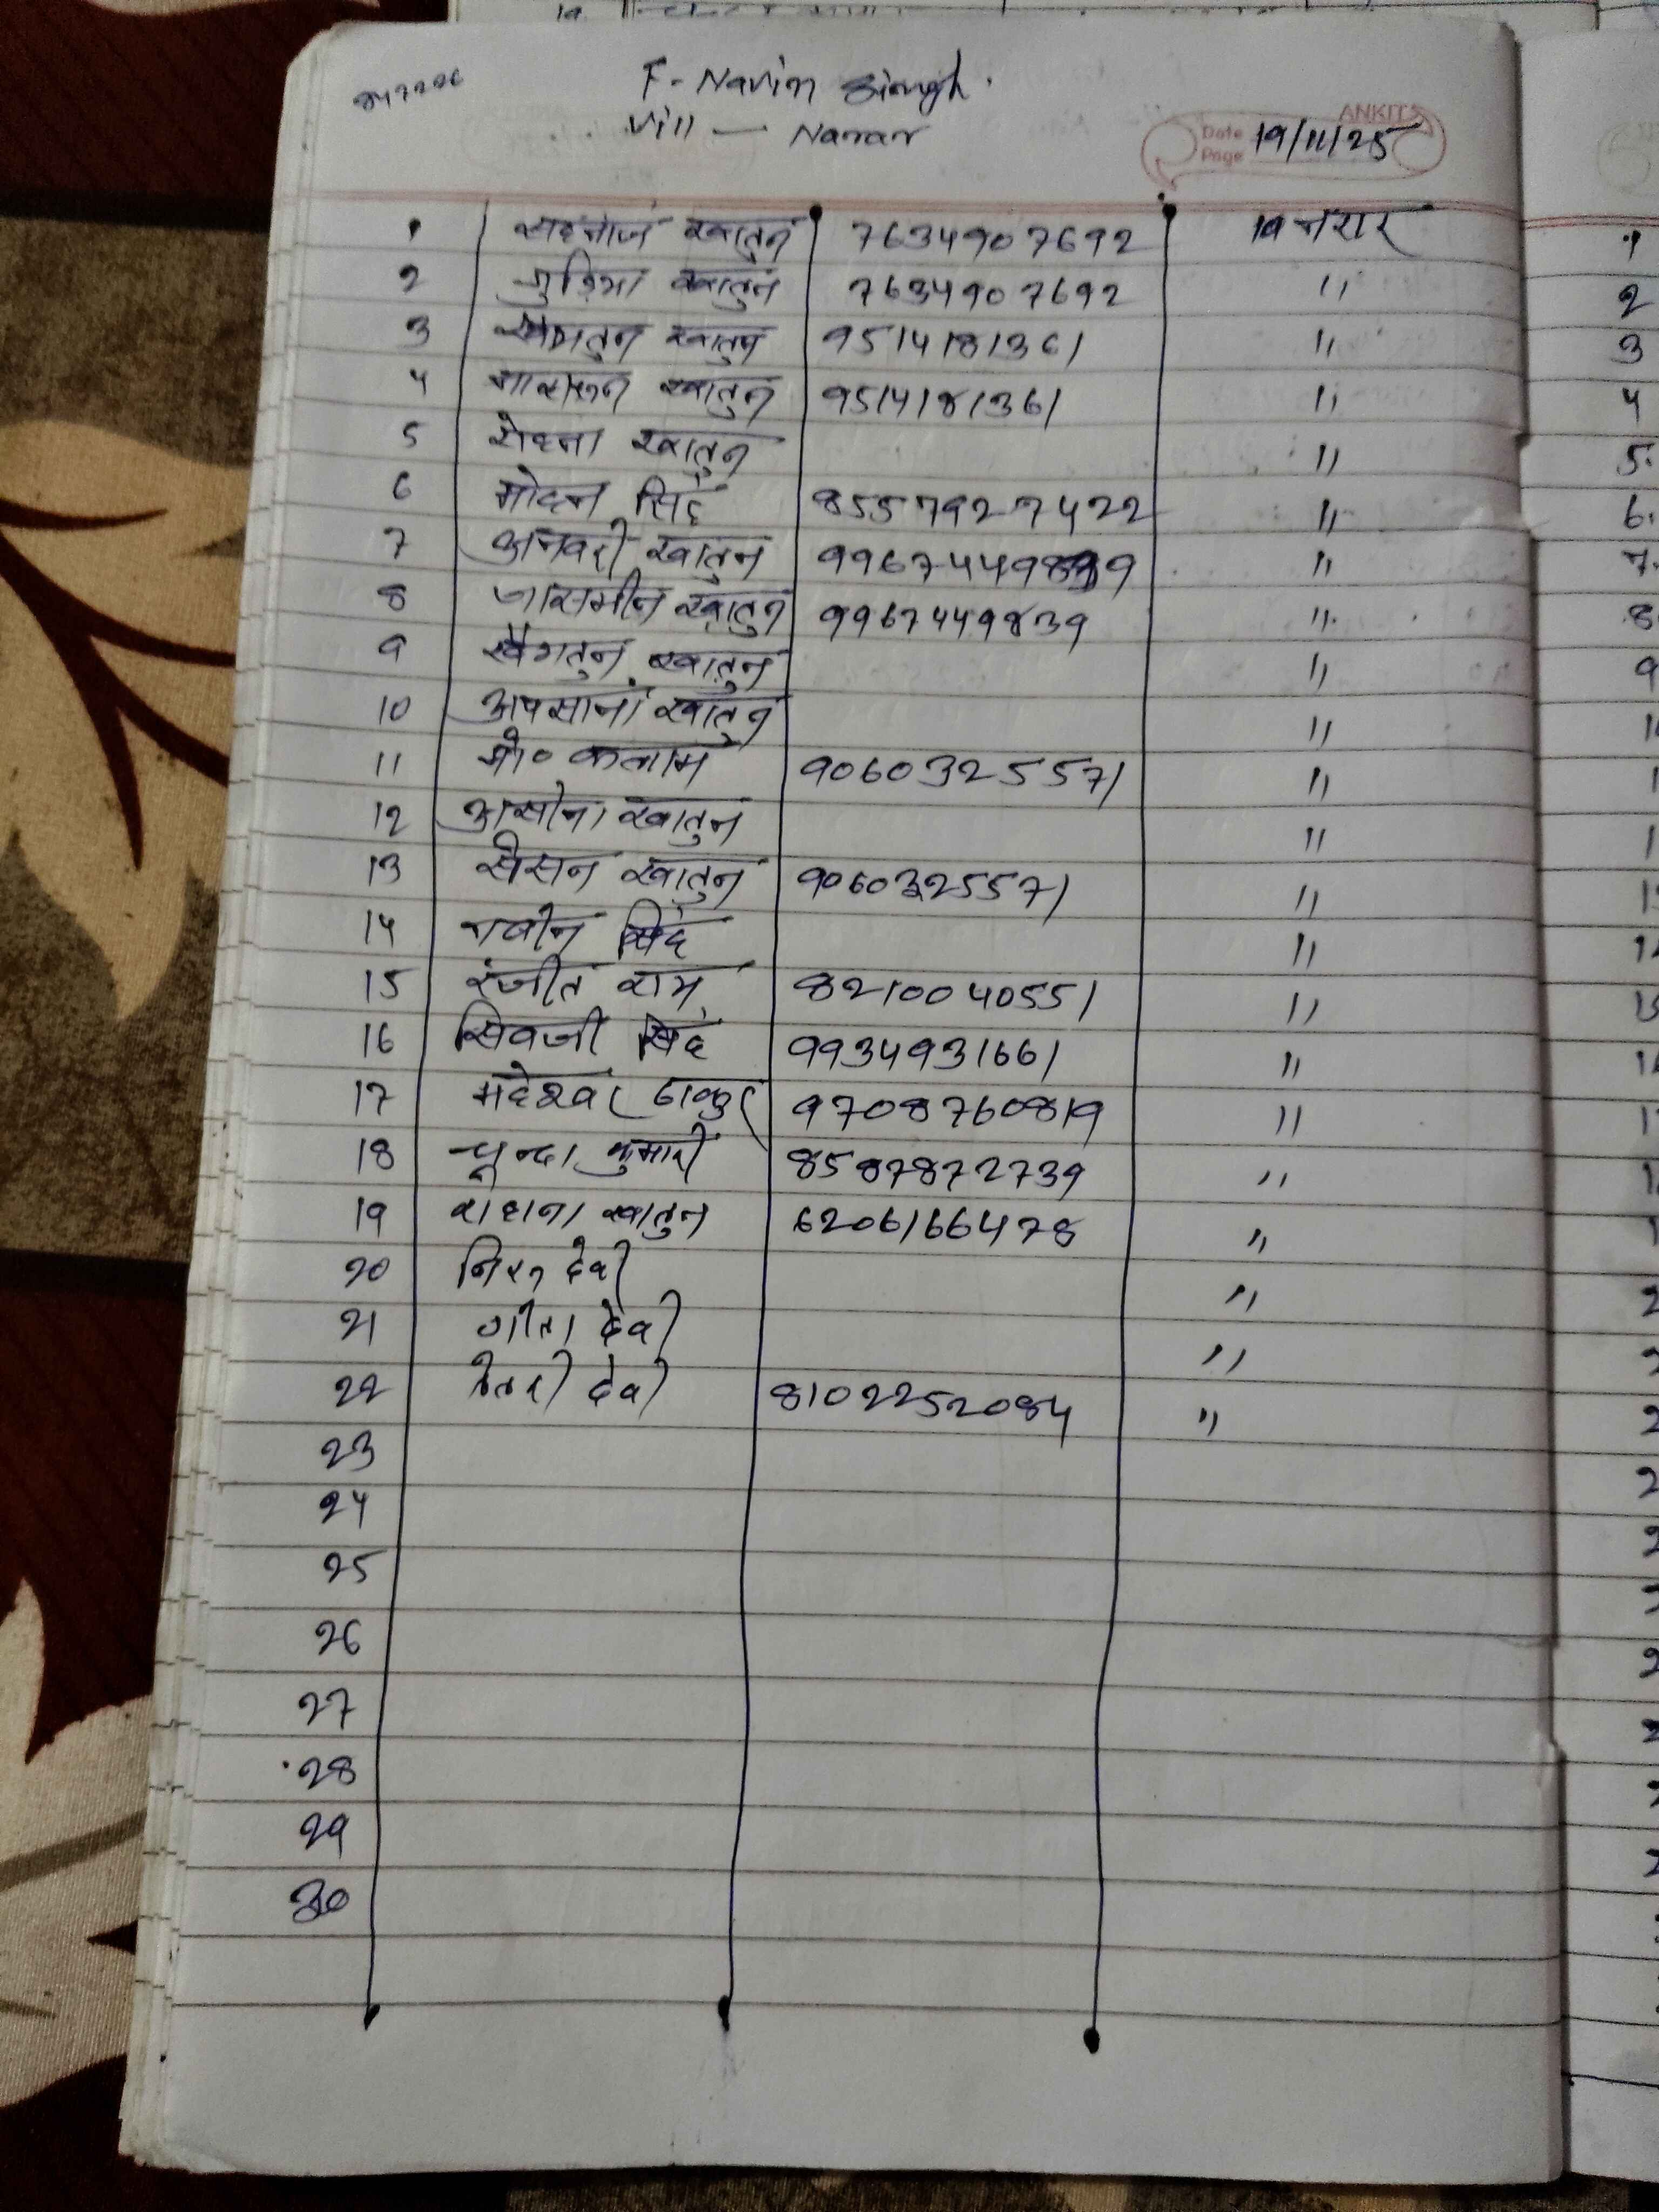 F- Navin Singh.
Vill — Narar
ANKIT
Date
Page
19/11/25
1 सहनाज खातुन 7634907692 ग्रा नरार
2 गुड़िया खातुन 7634907692 "
3 खैरातुन खातुन 9514181361 "
4 खातुन 9514181361 "
5 रोहना खातुन "
6 मोहन सिंह 8557927422 "
7 अनवरी खातुन "
8 जासमीन खातुन 9967449839 "
9 खैरातुन खातुन "
10 अपसाना खातुन "
11 मो० कलाम 9060325571 "
12 खातुन "
13 सैसन खातुन 9060325571 "
14 नवीन सिंह "
15 रंजीत राम 8210040551 "
16 सिवजी सिंह 9934931661 "
17 महेश्वर ठाकुर 9708760819 "
18 कुमारी 8587872739 "
19 खातुन 6206166478 "
20 देवी "
21 गीता देवी "
22 देवी 8102252084 "
23
24
25
26
27
28
29
30